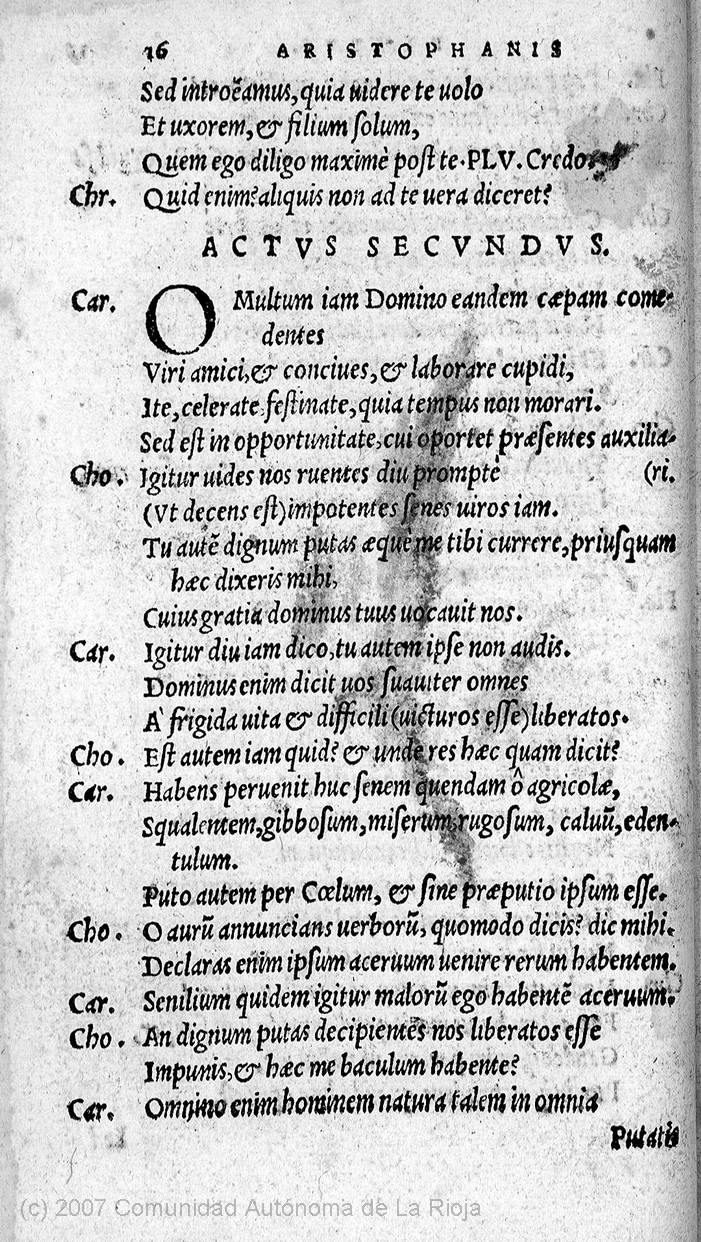 16 ARISTOPHANIS
Sed introëamus, quia uidere te uolo
Et uxorem, & filium ſolum,
Quem ego diligo maximè poſt te. PLV. Credo.
Chr. Quid enim? aliquis non ad te uera diceret?
ACTVS SECVNDVS.
Car. O Multum iam Domino eandem cæpam come-
dentes
Viri amici, & conciues, & laborare cupidi,
Ite, celerate, feſtinate, quia tempus non morari.
Sed eſt in opportunitate, cui oportet præſentes auxilia-
Cho. Igitur uides nos ruentes diu promptè (ri.
(Vt decens eſt) impotentes ſenes uiros iam.
Tu autē dignum putas æquè me tibi currere, priuſquam
hæc dixeris mihi,
Cuius gratia dominus tuus uocauit nos.
Car. Igitur diu iam dico, tu autem ipſe non audis.
Dominus enim dicit uos ſuauiter omnes
A` frigida uita & difficili (uicturos eſſe) liberatos.
Cho. Eſt autem iam quid? & unde res hæc quam dicit?
Car. Habens peruenit huc ſenem quendam ô agricolæ,
Squalentem, gibboſum, miſerum, rugoſum, caluū, eden-
tulum.
Puto autem per Cœlum, & ſine præputio ipſum eſſe.
Cho. O aurū annuncians uerborū, quomodo dicis? dic mihi.
Declaras enim ipſum aceruum uenire rerum habentem.
Car. Senilium quidem igitur malorū ego habentē aceruum.
Cho. An dignum putas decipientes nos liberatos eſſe
Impunis, & hæc me baculum habente?
Car. Omnino enim hominem natura talem in omnia
Putatis
(c) 2007 Comunidad Autónoma de La Rioja